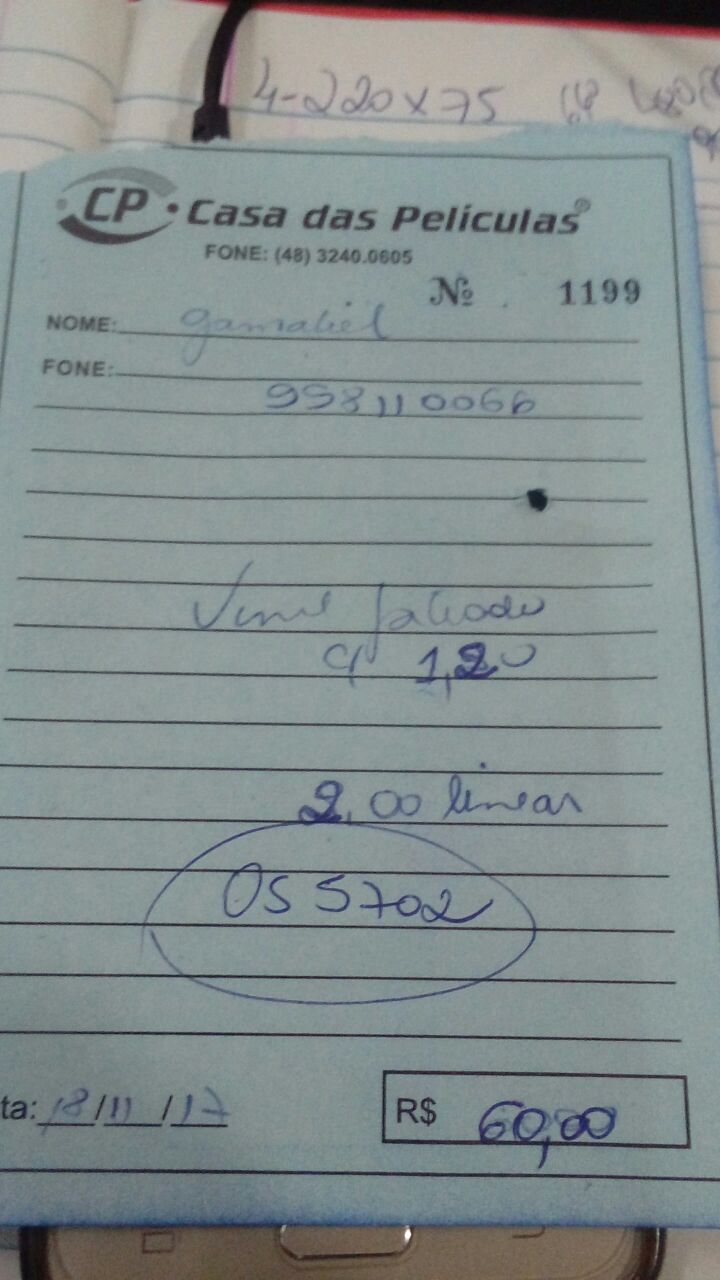 4-220x75
CP • Casa das Películas®
FONE: (48) 3240.0605
Nº 1199
NOME: Gamaliel
FONE:
998110066
Vinil jateado
c/ 1,20
2,00 linear
OS 5702
ta: 18/11/17
R$ 60,00